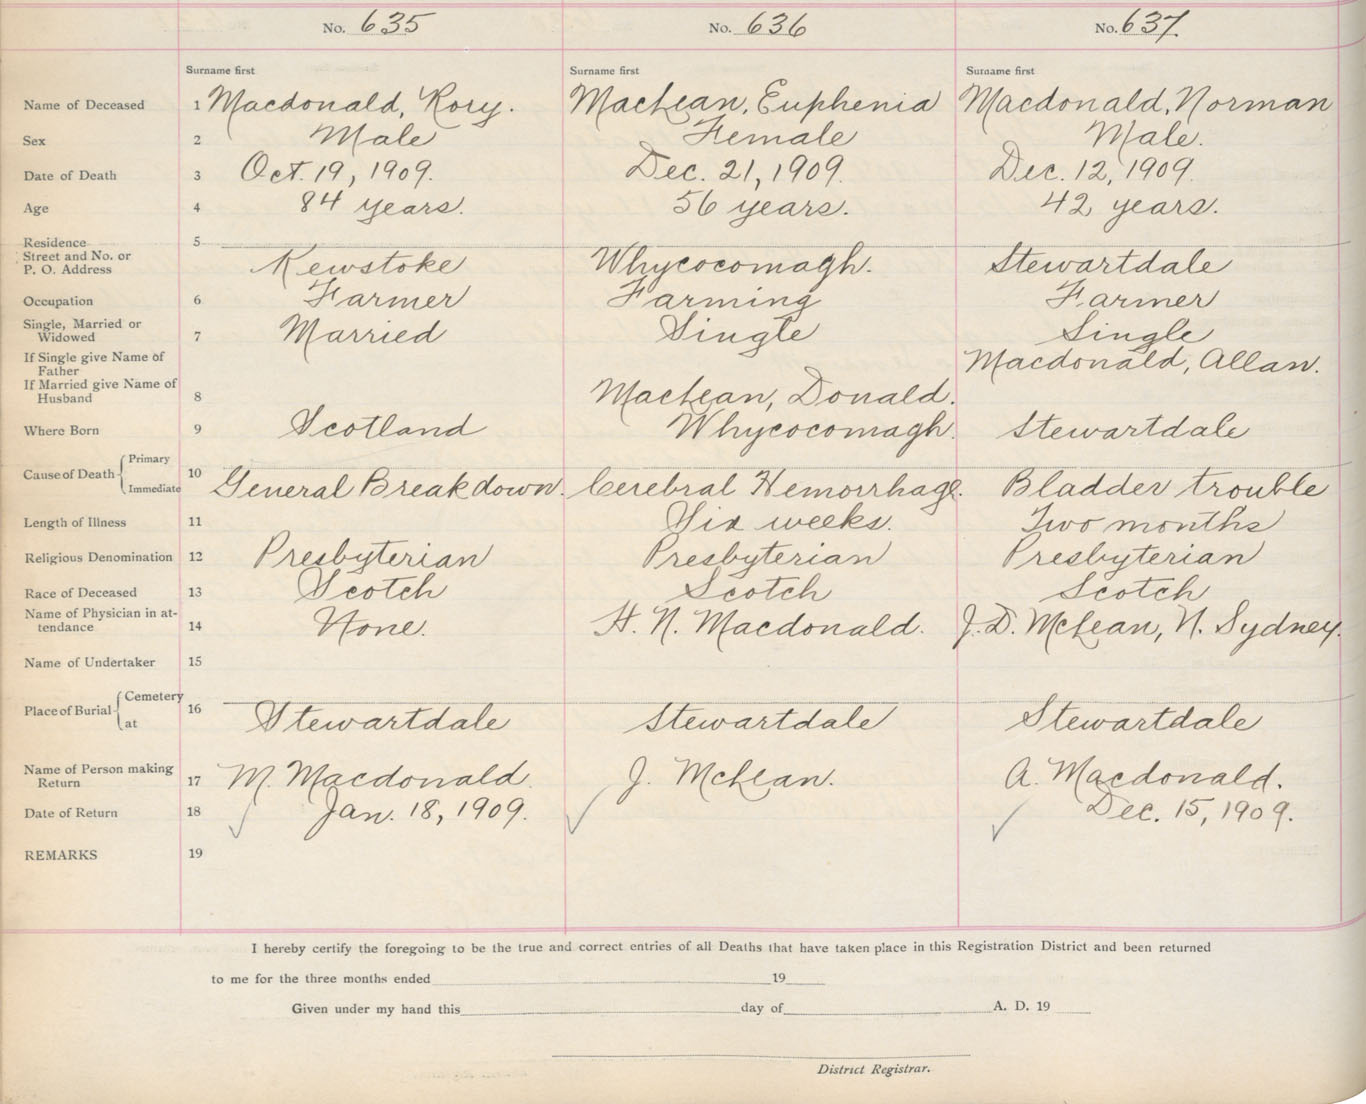 No. 635 No. 636 No. 637
Surname first Surname first Surname first
Name of Deceased 1 Macdonald, Rory. MacLean, Euphenia Macdonald, Norman
Sex 2 Male Female Male.
Date of Death 3 Oct. 19, 1909. Dec. 21, 1909. Dec. 12, 1909.
Age 4 84 years. 56 years. 42 years.
Residence 5
Street and No. or
P. O. Address Kewstoke Whycocomagh. Stewartdale
Occupation 6 Farmer Farming Farmer
Single, Married or
Widowed 7 Married Single Single
If Single give Name of
Father Macdonald, Allan.
If Married give Name of
Husband 8 MacLean, Donald.
Where Born 9 Scotland Whycocomagh. Stewartdale
Cause of Death Primary
10
Immediate General Breakdown. Cerebral Hemorrhage. Bladder trouble
Length of Illness 11 Six weeks. Two months
Religious Denomination 12 Presbyterian Presbyterian Presbyterian
Race of Deceased 13 Scotch Scotch Scotch
Name of Physician in at-
tendance 14 None. H. N. Macdonald. J. D. McLean, N. Sydney.
Name of Undertaker 15
Place of Burial Cemetery
16
at Stewartdale Stewartdale Stewartdale
Name of Person making
Return 17 M. Macdonald J. McLean. A. Macdonald.
Date of Return 18 Jan. 18, 1909. Dec. 15, 1909.
REMARKS 19
I hereby certify the foregoing to be the true and correct entries of all Deaths that have taken place in this Registration District and been returned
to me for the three months ended 19
Given under my hand this day of A. D. 19
District Registrar.